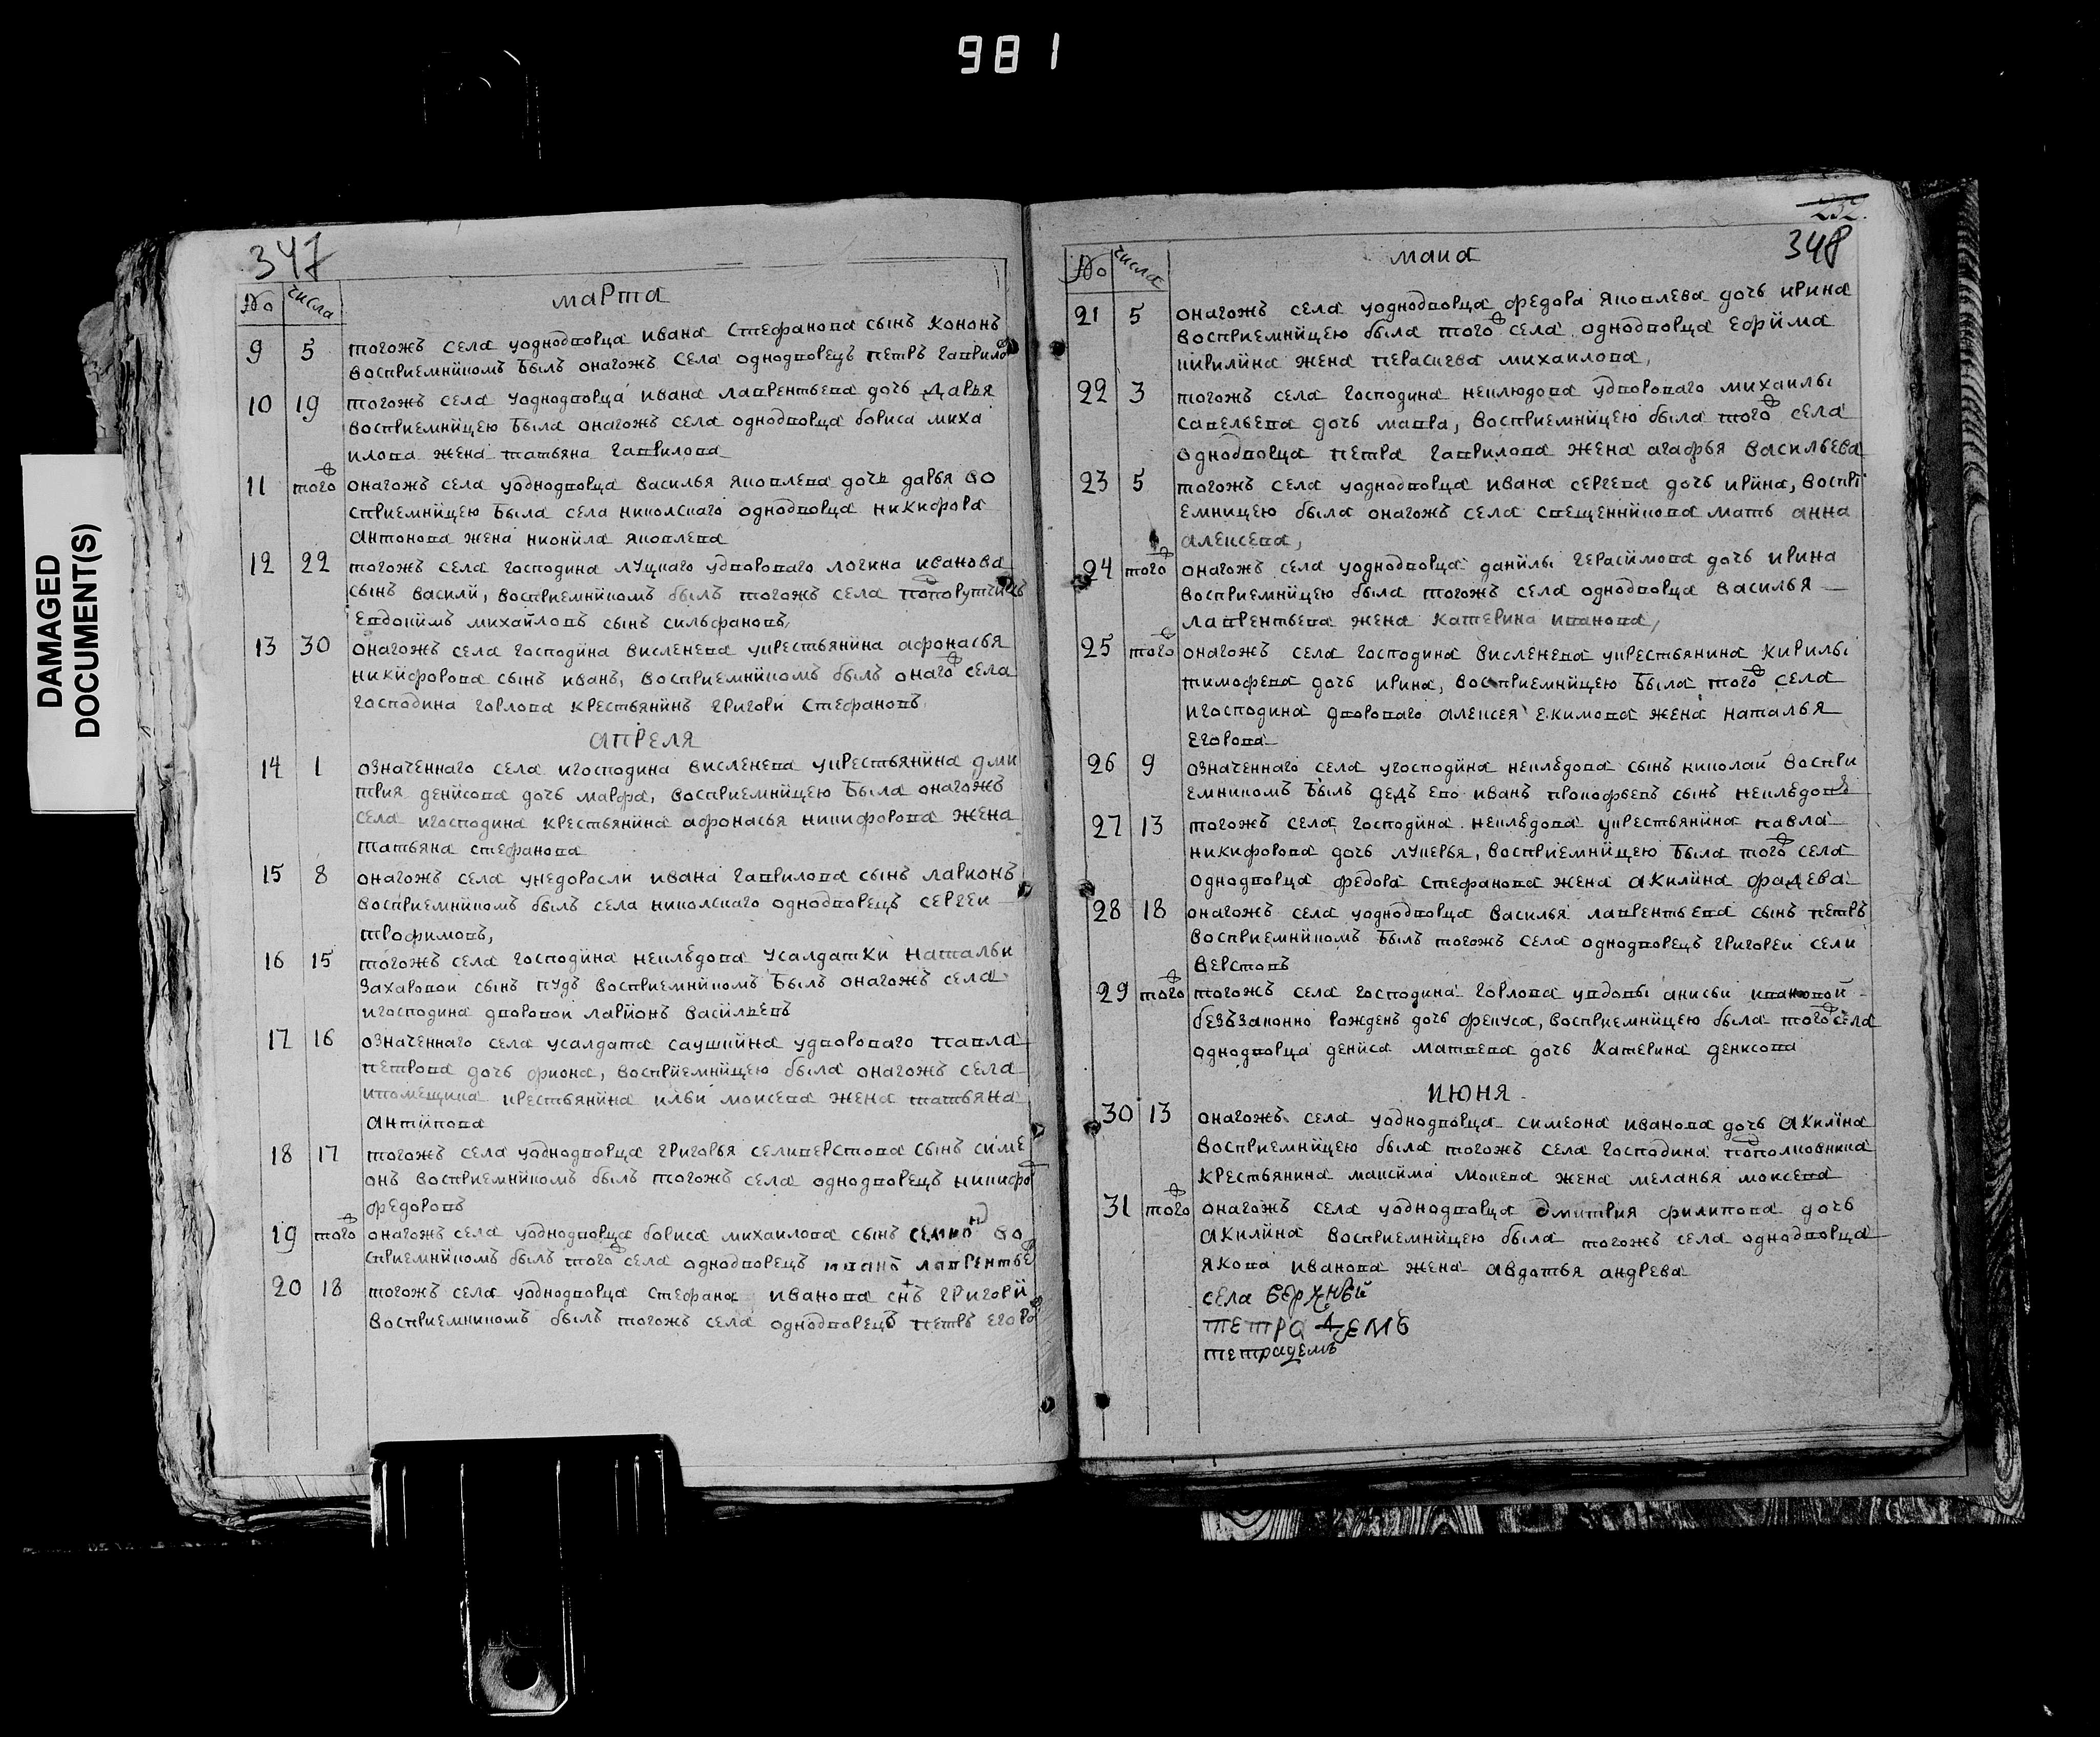 981
DAMAGED
DOCUMENT(S)
347
№ числа
марта
9 5 тогожъ села уоднодворца ивана Стефанова сынъ Кононъ
восприемникомъ былъ онагожъ села однодворецъ петръ гаврило
10 19 тогожъ села уоднодворца ивана лаврентьева дочь дарья
восприемницею была онагожъ села однодворца бориса миха
илова жена татьяна гаврилова
11 того онагожъ села уоднодворца василья яковлева дочь дарья во
сприемницею была села николскаго однодворца никифора
антонова жена нионила яковлева
12 22 тогожъ села господина луцкаго удвороваго логина иванова
сынъ васили, восприемникомъ былъ тогожъ села
евдокимъ михайловъ сынъ силфановъ,
13 30 онагожъ села господина висленева укрестьянина афонасья
никифорова сынъ иванъ, восприемникомъ былъ онаго села
господина горлова крестьянинъ григори стефановъ
апреля
14 1 означеннаго села игосподина висленева укрестьянина дми
трия денисова дочь марфа, восприемницею была онагожъ
села игосподина крестьянина афонасья никифорова жена
татьяна стефанова
15 8 онагожъ села унедоросли ивана гаврилова сынъ ларионъ
восприемникомъ былъ села николскаго однодворецъ сергеи
трофимовъ,
16 15 тогожъ села господина неклюдова усалдатки натальи
захаровои сынъ пудъ восприемникомъ былъ онагожъ села
игосподина дворовои ларионъ васильевъ
17 16 означеннаго села усалдата удвороваго павла
петрова дочь фиона, восприемницею была онагожъ села
ипомещика крестьянина ильи моисева жена татьяна
антипова
18 17 тогожъ села уоднодворца григорья селиверстова сынъ симе
онъ восприемникомъ былъ тогожъ села однодворецъ никифо
федоровъ
19 того онагожъ села уоднодворца бориса михаилова сынъ во
сприемникомъ былъ того села однодворецъ иванъ лаврентье
20 18 тогожъ села уоднодворца стефана иванова снъ григори
восприемникомъ былъ тогожъ села однодворецъ петръ егоро
232.
348
№ числа
маиа
21 5 онагожъ села уоднодворца федора яковлева дочь ирина
восприемницею была того села однодворца ефима
кирилина жена перасиева михаилова,
22 3 тогожъ села господина неклюдова удвороваго михаилы
савельева дочь мавра, восприемницею была того села
однодворца петра гаврилова жена агафья васильева
23 5 тогожъ села уоднодворца ивана сергева дочь ирина, воспри
емницею была онагожъ села свещенникова мать анна
алексева,
24 того онагожъ села уоднодворца данилы герасимова дочь ирина
восприемницею была тогожъ села однодворца василья
лаврентьева жена катерина иванова,
25 того онагожъ села господина висленева укрестьянина кирилы
тимофева дочь ирина, восприемницею была того села
игосподина двороваго алексея екимова жена наталья
егорова
26 9 означеннаго села угосподина неклюдова сынъ николаи воспри
емникомъ былъ дедъ ево иванъ прокофьевъ сынъ неклюдовъ
27 13 тогожъ села господина неклюдова укрестьянина павла
никифорова дочь лукерья, восприемницею была того села
однодворца федора стефанова жена акилина фадева
28 18 онагожъ села уоднодворца василья лаврентьева сынъ петръ
восприемникомъ былъ тогожъ села однодворецъ григореи сели
верстовъ
29 того тогожъ села господина горлова увдовы анисьи ивановой
безъзаконно рожденъ дочь фекуса, восприемницею была того села
однодворца дениса матвева дочь катерина денисова
июня
30 13 онагожъ села уоднодворца симеона иванова дочь акилина
восприемницею была тогожъ села господина потполковника
крестьянина максима мокева жена меланья моисева
31 того онагожъ села уоднодворца дмитрия филипова дочь
акилина восприемницею была тогожъ села однодворца
якова иванова жена авдотья андрева
села
тетрадемъ